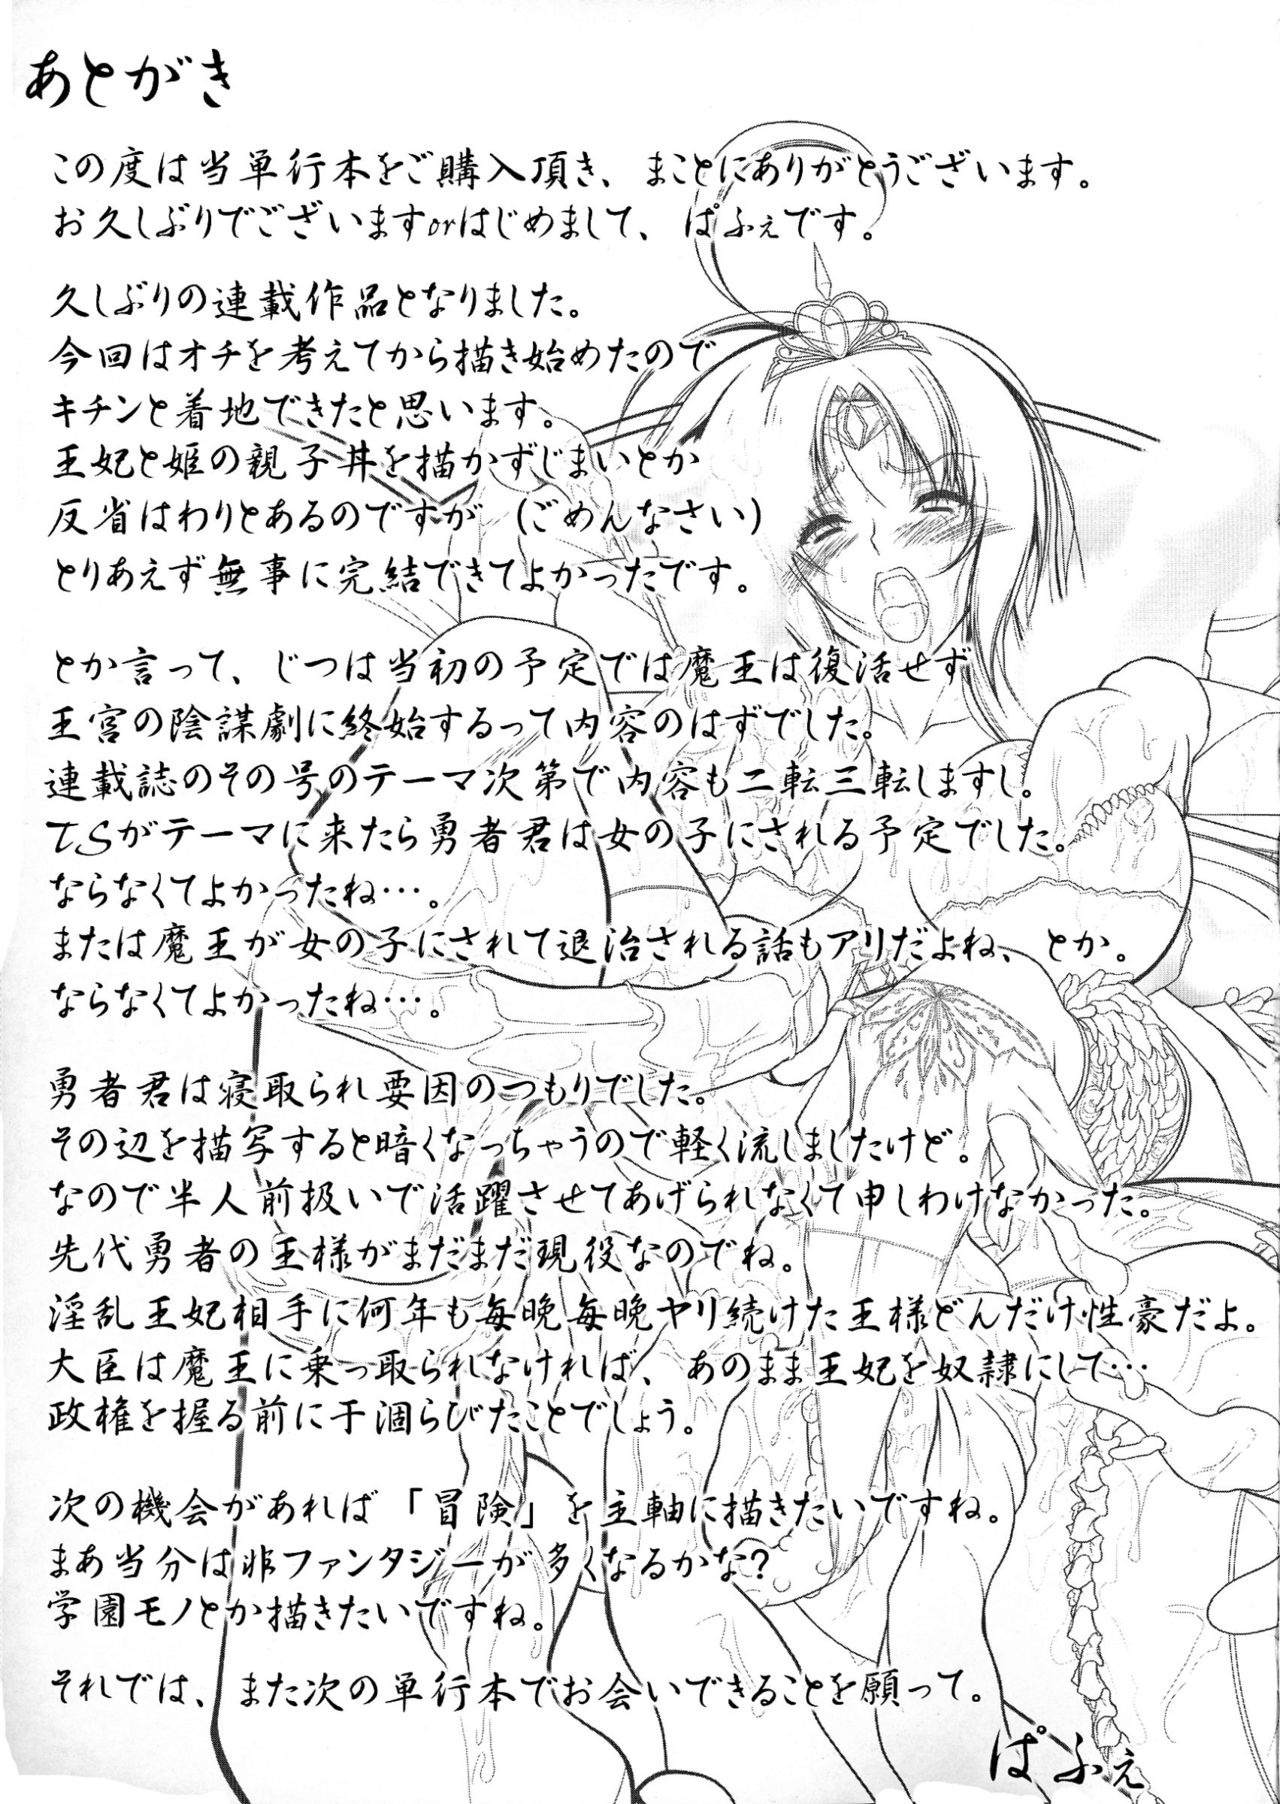 あとがき
この度は当単行本をご購入頂き、まことにありがとうございます。
お久しぶりでございますorはじめまして、ぱふぇです。
久しぶりの連載作品となりました。
今回はオチを考えてから描き始めたので
キチンと着地できたと思います。
王妃と姫の親子丼を描かずじまいとか
反省はわりとあるのですが(ごめんなさい)
とりあえず無事に完結できてよかったです。
とか言って、じつは当初の予定では魔王は復活せず
王宮の陰謀劇に終始するって内容のはずでした。
連載誌のその号のテーマ次第で内容も二転三転しますし。
TSがテーマに来たら勇者君は女の子にされる予定でした。
ならなくてよかったね…。
または魔王が女の子にされて退治される話もアリだよね、とか。
ならなくてよかったね…。
勇者君は寝取られ要因のつもりでした。
その辺を描写すると暗くなっちゃうので軽く流しましたけど。
なので半人前扱いで活躍させてあげられなくて申しわけなかった。
先代勇者の王様がまだまだ現役なのでね。
淫乱王妃相手に何年も毎晩毎晩ヤリ続けた王様どんだけ性豪だよ。
大臣は魔王に乗っ取られなければ、あのまま王妃を奴隷にして…
政権を握る前に干涸らびたことでしょう。
次の機会があれば「冒険」を主軸に描きたいですね。
まあ当分は非ファンタジーが多くなるかな?
学園モノとか描きたいですね。
それでは、また次の単行本でお会いできることを願って。
ぱふぇ